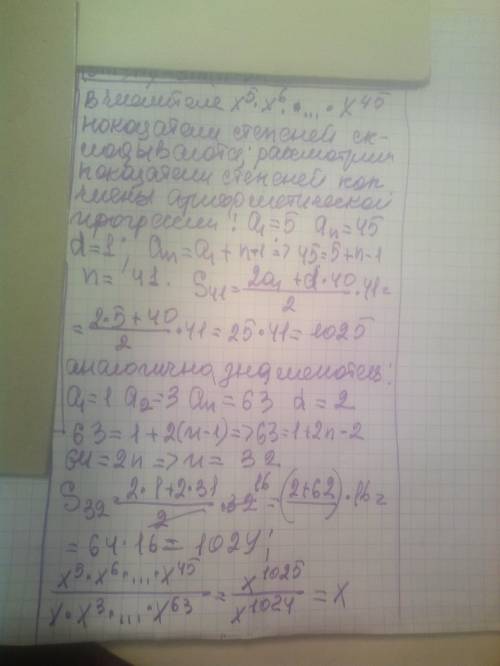 В числителе x⁵·x⁶·...·x⁴⁵
показатели степеней ск-
ладываются: рассмотрим
показатели степеней как
члены арифметической
прогрессии: a₁=5 aₙ=45
d=1; aₙ=a₁+n-1=>45=5+n-1
n=41. S₄₁=(2a₁+d·40)/2·41=
=(2·5+40)/2·41=25·41=1025
аналогично, знаменатель:
a₁=1 a₂=3 aₙ=63 d=2
63=1+2(n-1)=>63=1+2n-2
64=2n=>n=32
S₃₂=(2·1+2·31)/2·32 16=(2+62)·16=
=64·16=1024;
(x⁵·x⁶·...·x⁴⁵)/(x·x³·...·x⁶³)=x¹⁰²⁵/x¹⁰²⁴=x